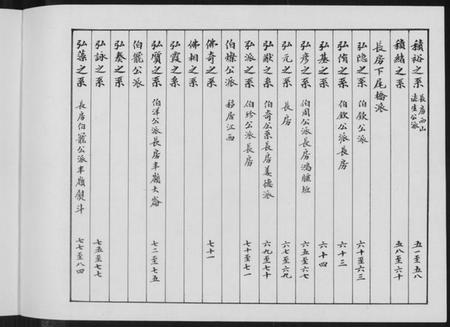 積裕之系 長房西山遠生公派 五一至五八
積緒之系 五八至六十
長房下尾橋派
弘隐之系 伯欽公派 六十至六三
弘脩之系 伯欽公派長房 六十三
弘基之系 六十四
弘彦之系 伯周公派長房鴻臚坵 六五至六七
弘元之系 長房 六七至六九
弘猷之系 伯奇公系長房姜德派 六九至七十
弘派之系 伯珍公派長房 七十至七一
伯燦公派 移居江西
佛奇之系 七十一
佛相之系
弘霞之系
弘賓之系 伯洋公派長房半嶺大崙 七二至七五
伯罷公派
弘奏之系
弘詠之系 七五至七七
弘藻之系 長房伯罷公派半嶺熨斗 七七至八四